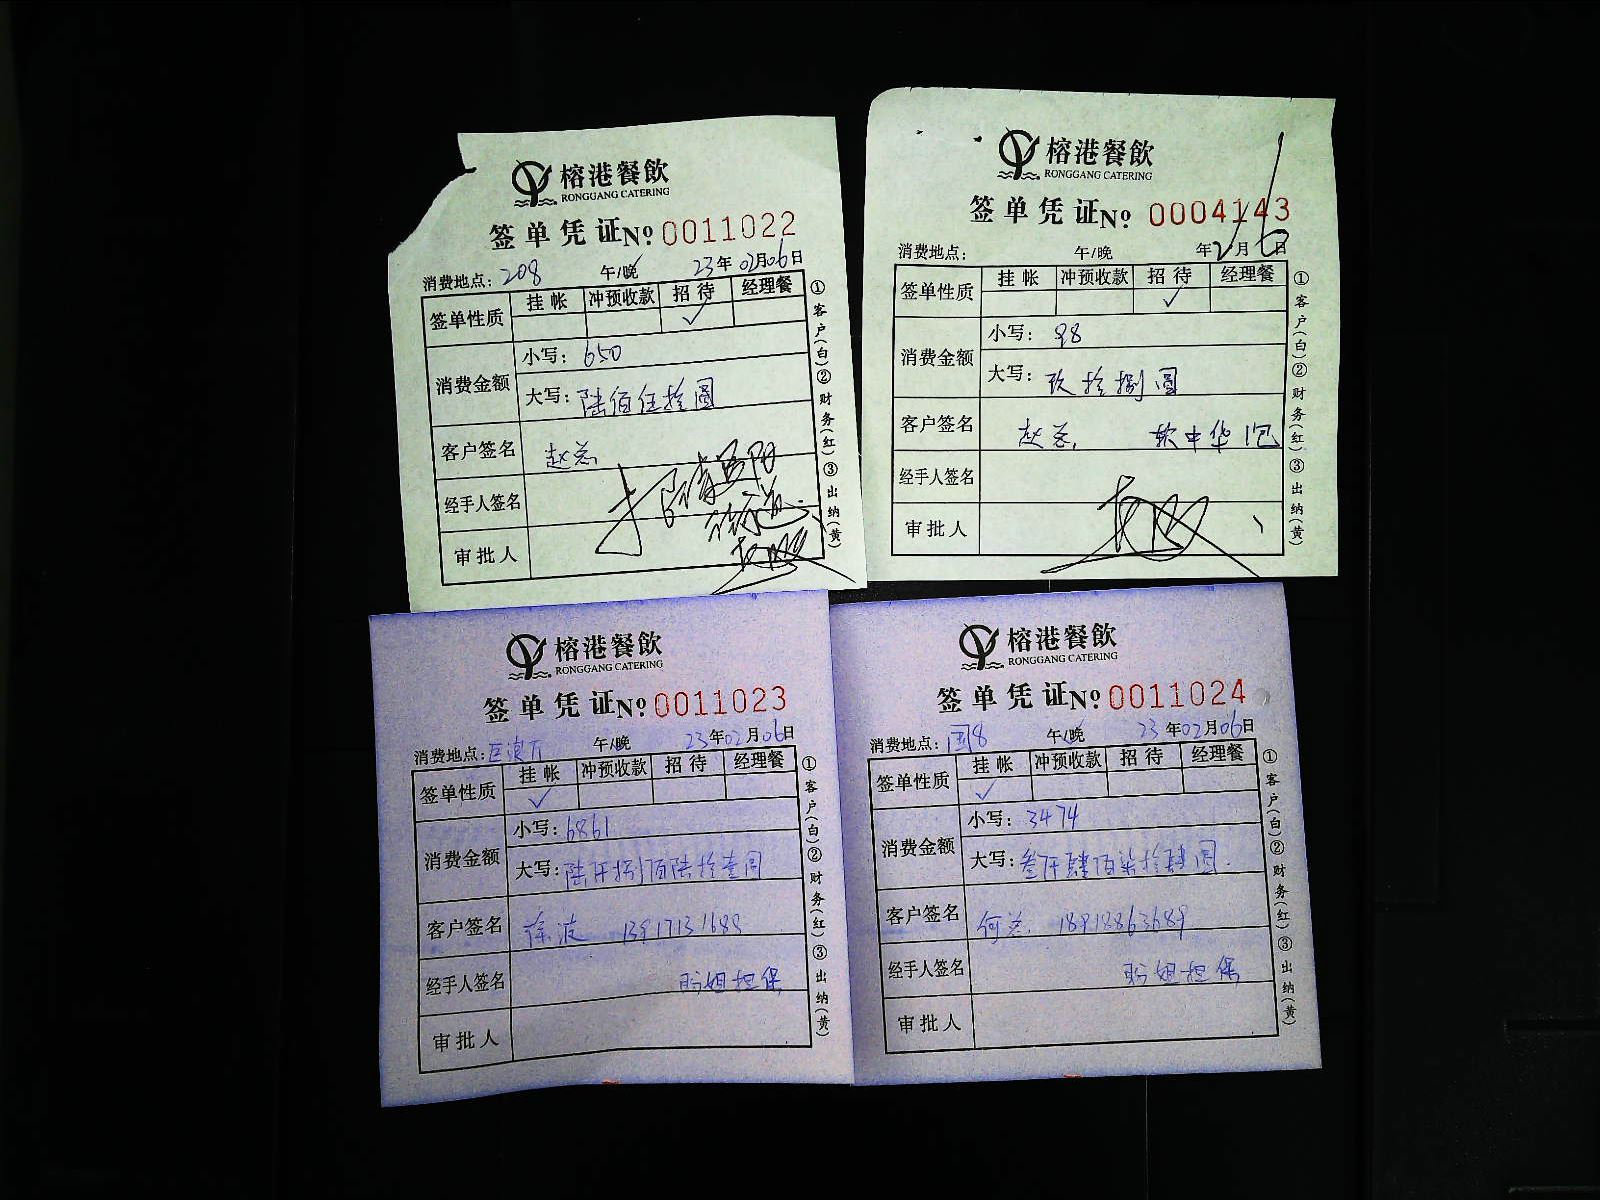 榕港餐飲
RONGGANG CATERING
签单凭证 No 0011022
消费地点: 208 午/晚 23年02月06日
签单性质 挂帐 冲预收款 招待 经理餐
✓
消费金额 小写: 650
大写: 陆佰伍拾圆
客户签名 赵总
经手人签名
审批人
①客户(白)②财务(红)③出纳(黄)
榕港餐飲
RONGGANG CATERING
签单凭证 No 0004143
消费地点: 午/晚 年2月6日
签单性质 挂帐 冲预收款 招待 经理餐
✓
消费金额 小写: 98
大写: 玖拾捌圆
客户签名 赵总 软中华1包
经手人签名
审批人
①客户(白)②财务(红)③出纳(黄)
榕港餐飲
RONGGANG CATERING
签单凭证 No 0011023
消费地点: 午/晚 23年02月06日
签单性质 挂帐 冲预收款 招待 经理餐
✓
消费金额 小写: 6861
大写: 陆仟捌佰陆拾壹圆
客户签名 徐波 13917131688
经手人签名 盼姐担保
审批人
①客户(白)②财务(红)③出纳(黄)
榕港餐飲
RONGGANG CATERING
签单凭证 No 0011024
消费地点: 国8 午/晚 23年02月06日
签单性质 挂帐 冲预收款 招待 经理餐
✓
消费金额 小写: 3474
大写: 叁仟肆佰柒拾肆圆
客户签名 何总 18918863689
经手人签名 盼姐担保
审批人
①客户(白)②财务(红)③出纳(黄)